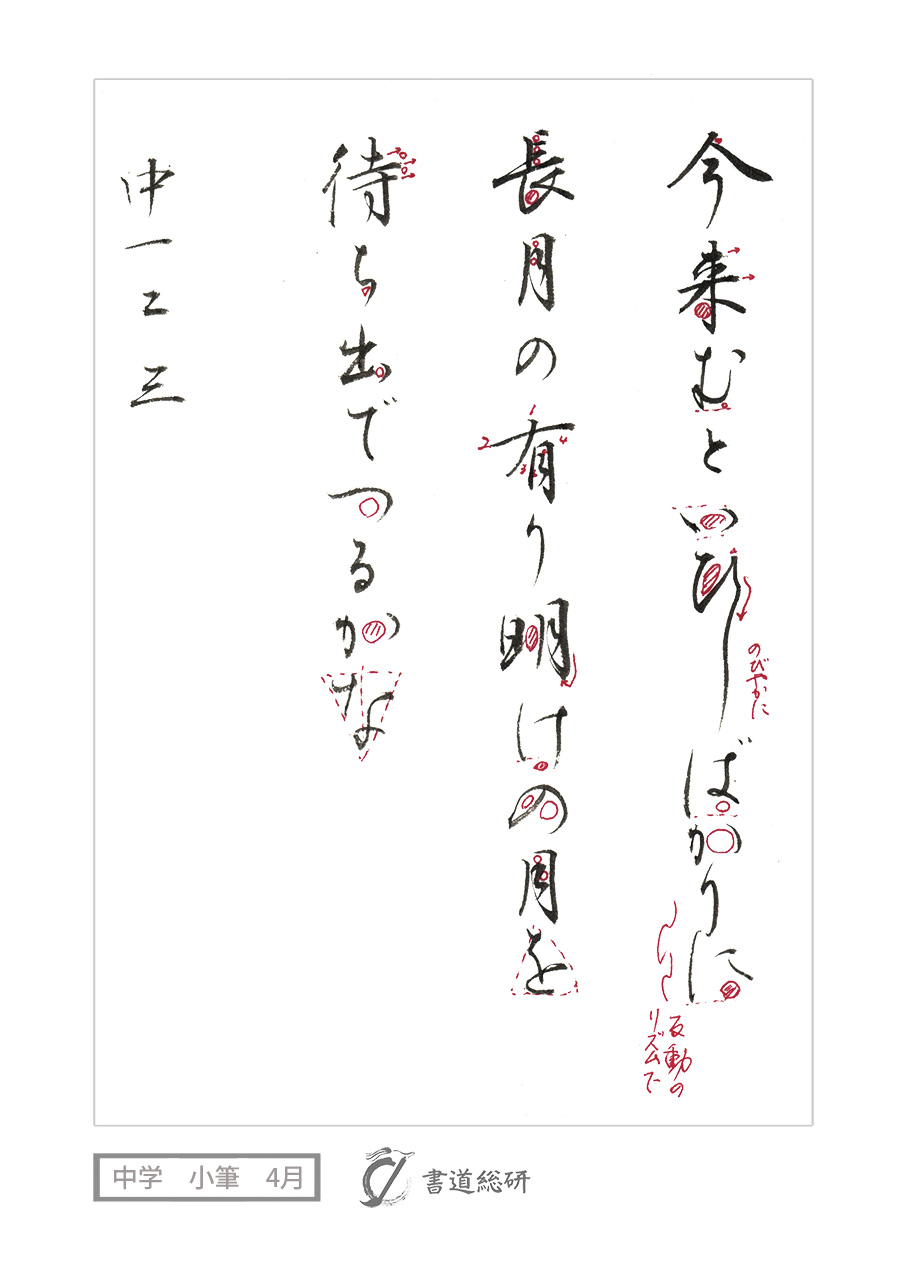 今来むといひしばかりに
のびやかに
反動の
リズムで
長月の有り明けの月を
1
2
3
4
待ち出でつるかな
中一二三
中学 小筆 4月
書道総研